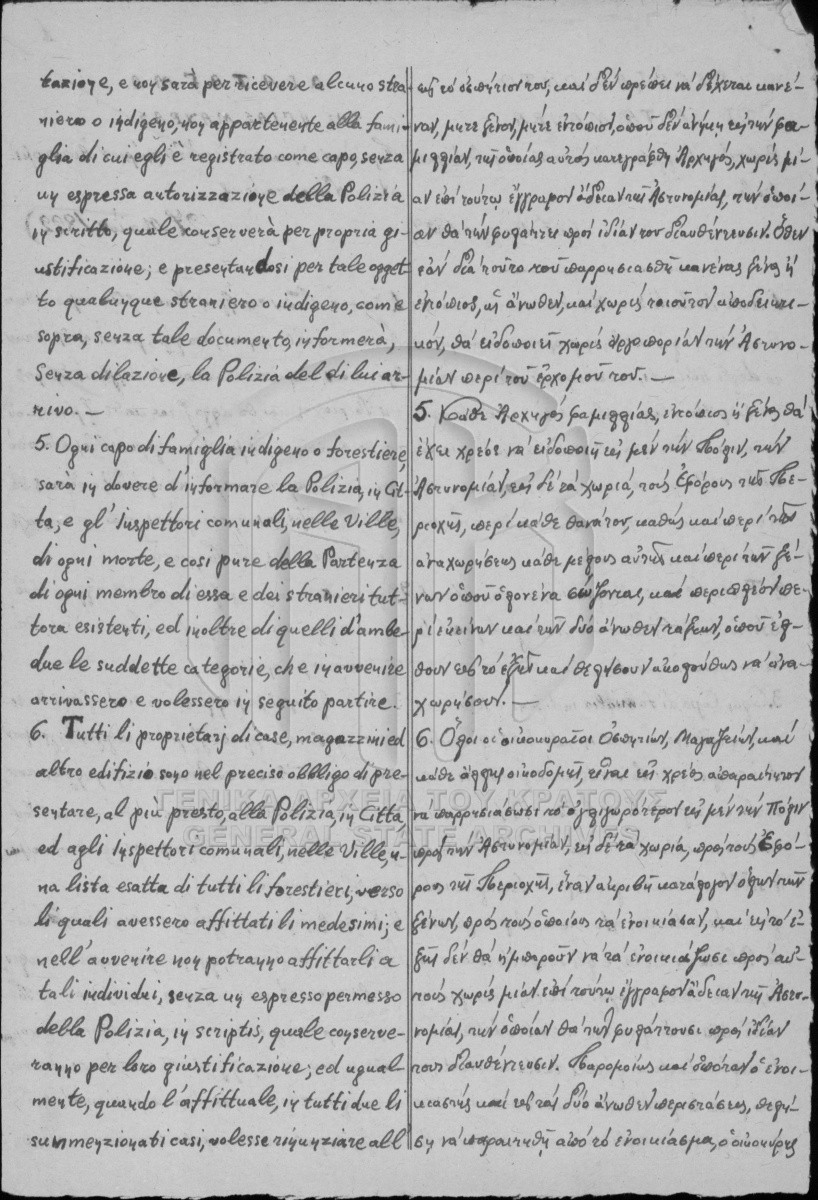 tazione, e non sarà per ricevere alcuno stra-
niero o indigeno, non appartenente alla fami-
glia di cui egli è registrato come capo, senza
un espressa autorizzazione della Polizia
in scritto, quale conserverà per propria gi-
ustificazione; e presentandosi per tale ogget-
to qualunque straniero o indigeno, come
sopra, senza tale documento, informerà,
senza dilazione, la Polizia del di lui ar-
rivo. —
5. Ogni capo di famiglia indigeno o forestiere,
sarà in dovere d'informare la Polizia, in Cit-
ta, e gl' Inspettori comunali, nelle Ville,
di ogni morte, e cosi pure della Partenza
di ogni membro di essa e dei stranieri tut-
tora esistenti, ed inoltre di quelli d'ambe-
due le suddette categorie, che in avvenire
arrivassero e volessero in seguito partire.
6. Tutti li proprietarj di case, magazzini ed
altro edifizio sono nel preciso obbligo di pre-
sentare, al piu presto, alla Polizia, in Città,
ed agli Inspettori comunali, nelle Ville, u-
na lista esatta di tutti li forestieri, verso
li quali avessero affittati li medesimi; e
nell'avvenire non potranno affittarli a
tali individui, senza un espresso permesso
della Polizia, in scriptis, quale conserve-
ranno per loro giustificazione; ed ugual-
mente, quando l'affittuale, in tutti due li
summenzionati casi, volesse rinunziare all
εις τό οσπήτιον του, καί δέν πρέπει νά δέχεται κανέ-
ναν, μήτε ξένον, μήτε εντόπιον, οπού δέν ανήκη εις τήν φα-
μιλλίαν, της οποίας αυτός κατεγράφθη Αρχηγός, χωρίς μί-
αν επί τούτω έγγραφον άδειαν της Αστυνομίας, τήν οποί-
αν θά τήν φυλάττει πρός ιδίαν του διαυθέντευσιν. Όθεν
εάν διά τούτο του παρρησιασθή κανένας ξένος ή
εντόπιος, ως άνωθεν, καί χωρίς τοιούτον αποδεικτι-
κόν, θά ειδοποιεί χωρίς άργοπορίαν τήν Αστυνο-
μίαν περί του ερχομού του. —
5. Κάθε Αρχηγός φαμιλλίας, εντόπιος ή ξένος θά
έχει χρέος νά ειδοποιή εις μέν τήν Πόλιν, τήν
Αστυνομίαν, εις δέ τά χωρία, τούς Εφόρους της Πε-
ριοχής, περί κάθε θανάτου, καθώς καί περί της
αναχωρήσεως κάθε μέλους αυτής καί περί των ξέ-
νων οπού ολονένα σώζονται, καί περιπλέον πε-
ρί εκείνων καί των δύο άνωθεν τάξεων, οπού έλ-
θουν εις τό εξής καί θελήσουν ακολούθως νά ανα-
χωρήσουν. —
6. Όλοι οι οικοκυραίοι Οσπητίων, Μαγαζείων, καί
κάθε άλλης οικοδομής, είναι εις χρέος απαραίτητον
νά παρρησιάσωσι τό ογλιγωρότερον εις μέν τήν Πόλιν
πρός τήν Αστυνομίαν, εις δέ τά χωρία, πρός τούς Εφό-
ρους της Περιοχής, έναν ακριβή κατάλογον όλων των
ξένων, πρός τους οποίους τά ενοικίασαν, καί εις τό ε-
ξής δέν θά ημπορούν νά τά ενοικιάζωσι πρός αυ-
τούς χωρίς μίαν επί τούτω έγγραφον άδειαν της Αστυ-
νομίας, τήν οποίαν θά τήν φυλάττουσι πρός ιδίαν
τους διαυθέντευσιν. Παρομοίως καί οπόταν ο ενοι-
κιαστής καί εις τάς δύο άνωθεν περιστάσεις, θελή-
ση νά παραιτηθή από τό ενοικίασμα, ο οικοκύρης
ΓΕΝΙΚΑ ΑΡΧΕΙΑ ΤΟΥ ΚΡΑΤΟΥΣ
GENERAL STATE ARCHIVES